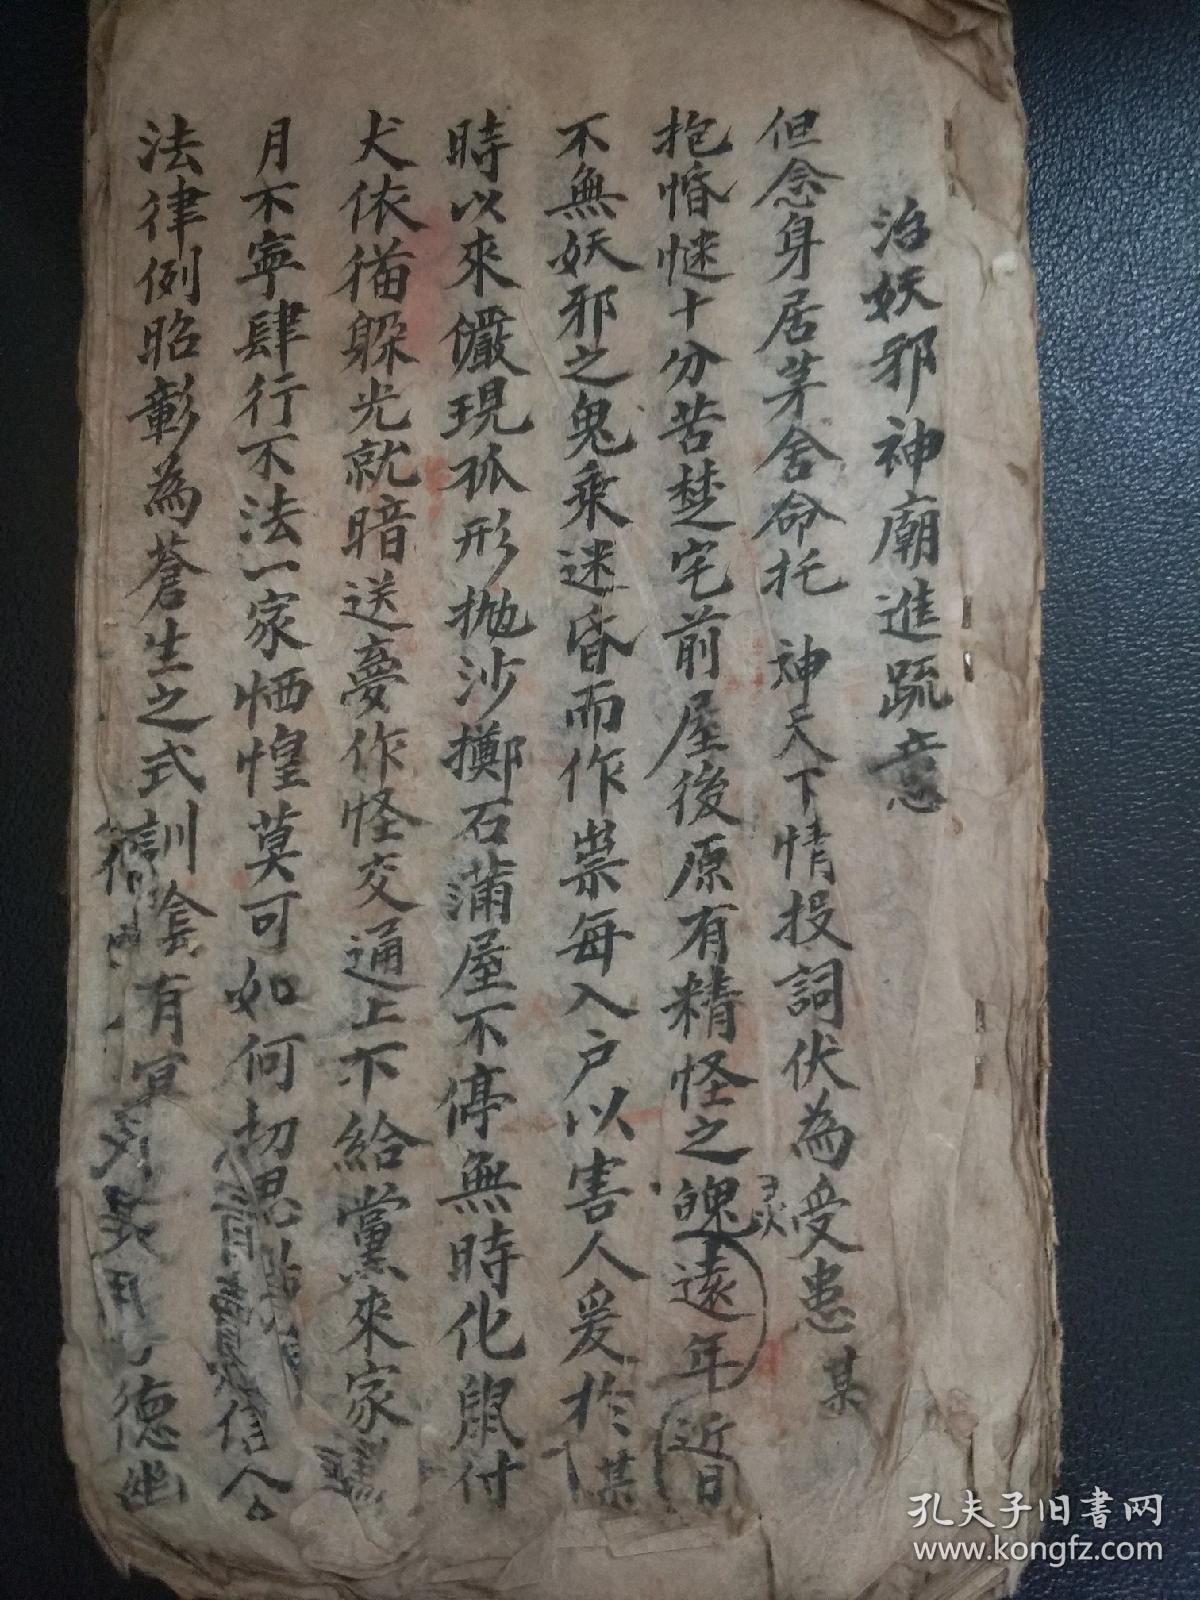 治妖邪神廟進疏意
但念身居茅舍命托 神天下情投詞伏為受患某
抱惛憾十分苦楚宅前屋後原有精怪之魂遠年近日
灵
不無妖邪之鬼乘迷昏而作祟每入戶以害人爰於某
時以來儼現孤形拋沙擲石蒲屋不停無時化鼠付
犬依猫躱光就暗送夢作怪交通上下給黨來家
月不寧肆行不法一家恓惶莫可如何切思 信合
法律例昭彰為蒼生之式訓陰有冥 德幽
孔夫子旧书网
www.kongfz.com